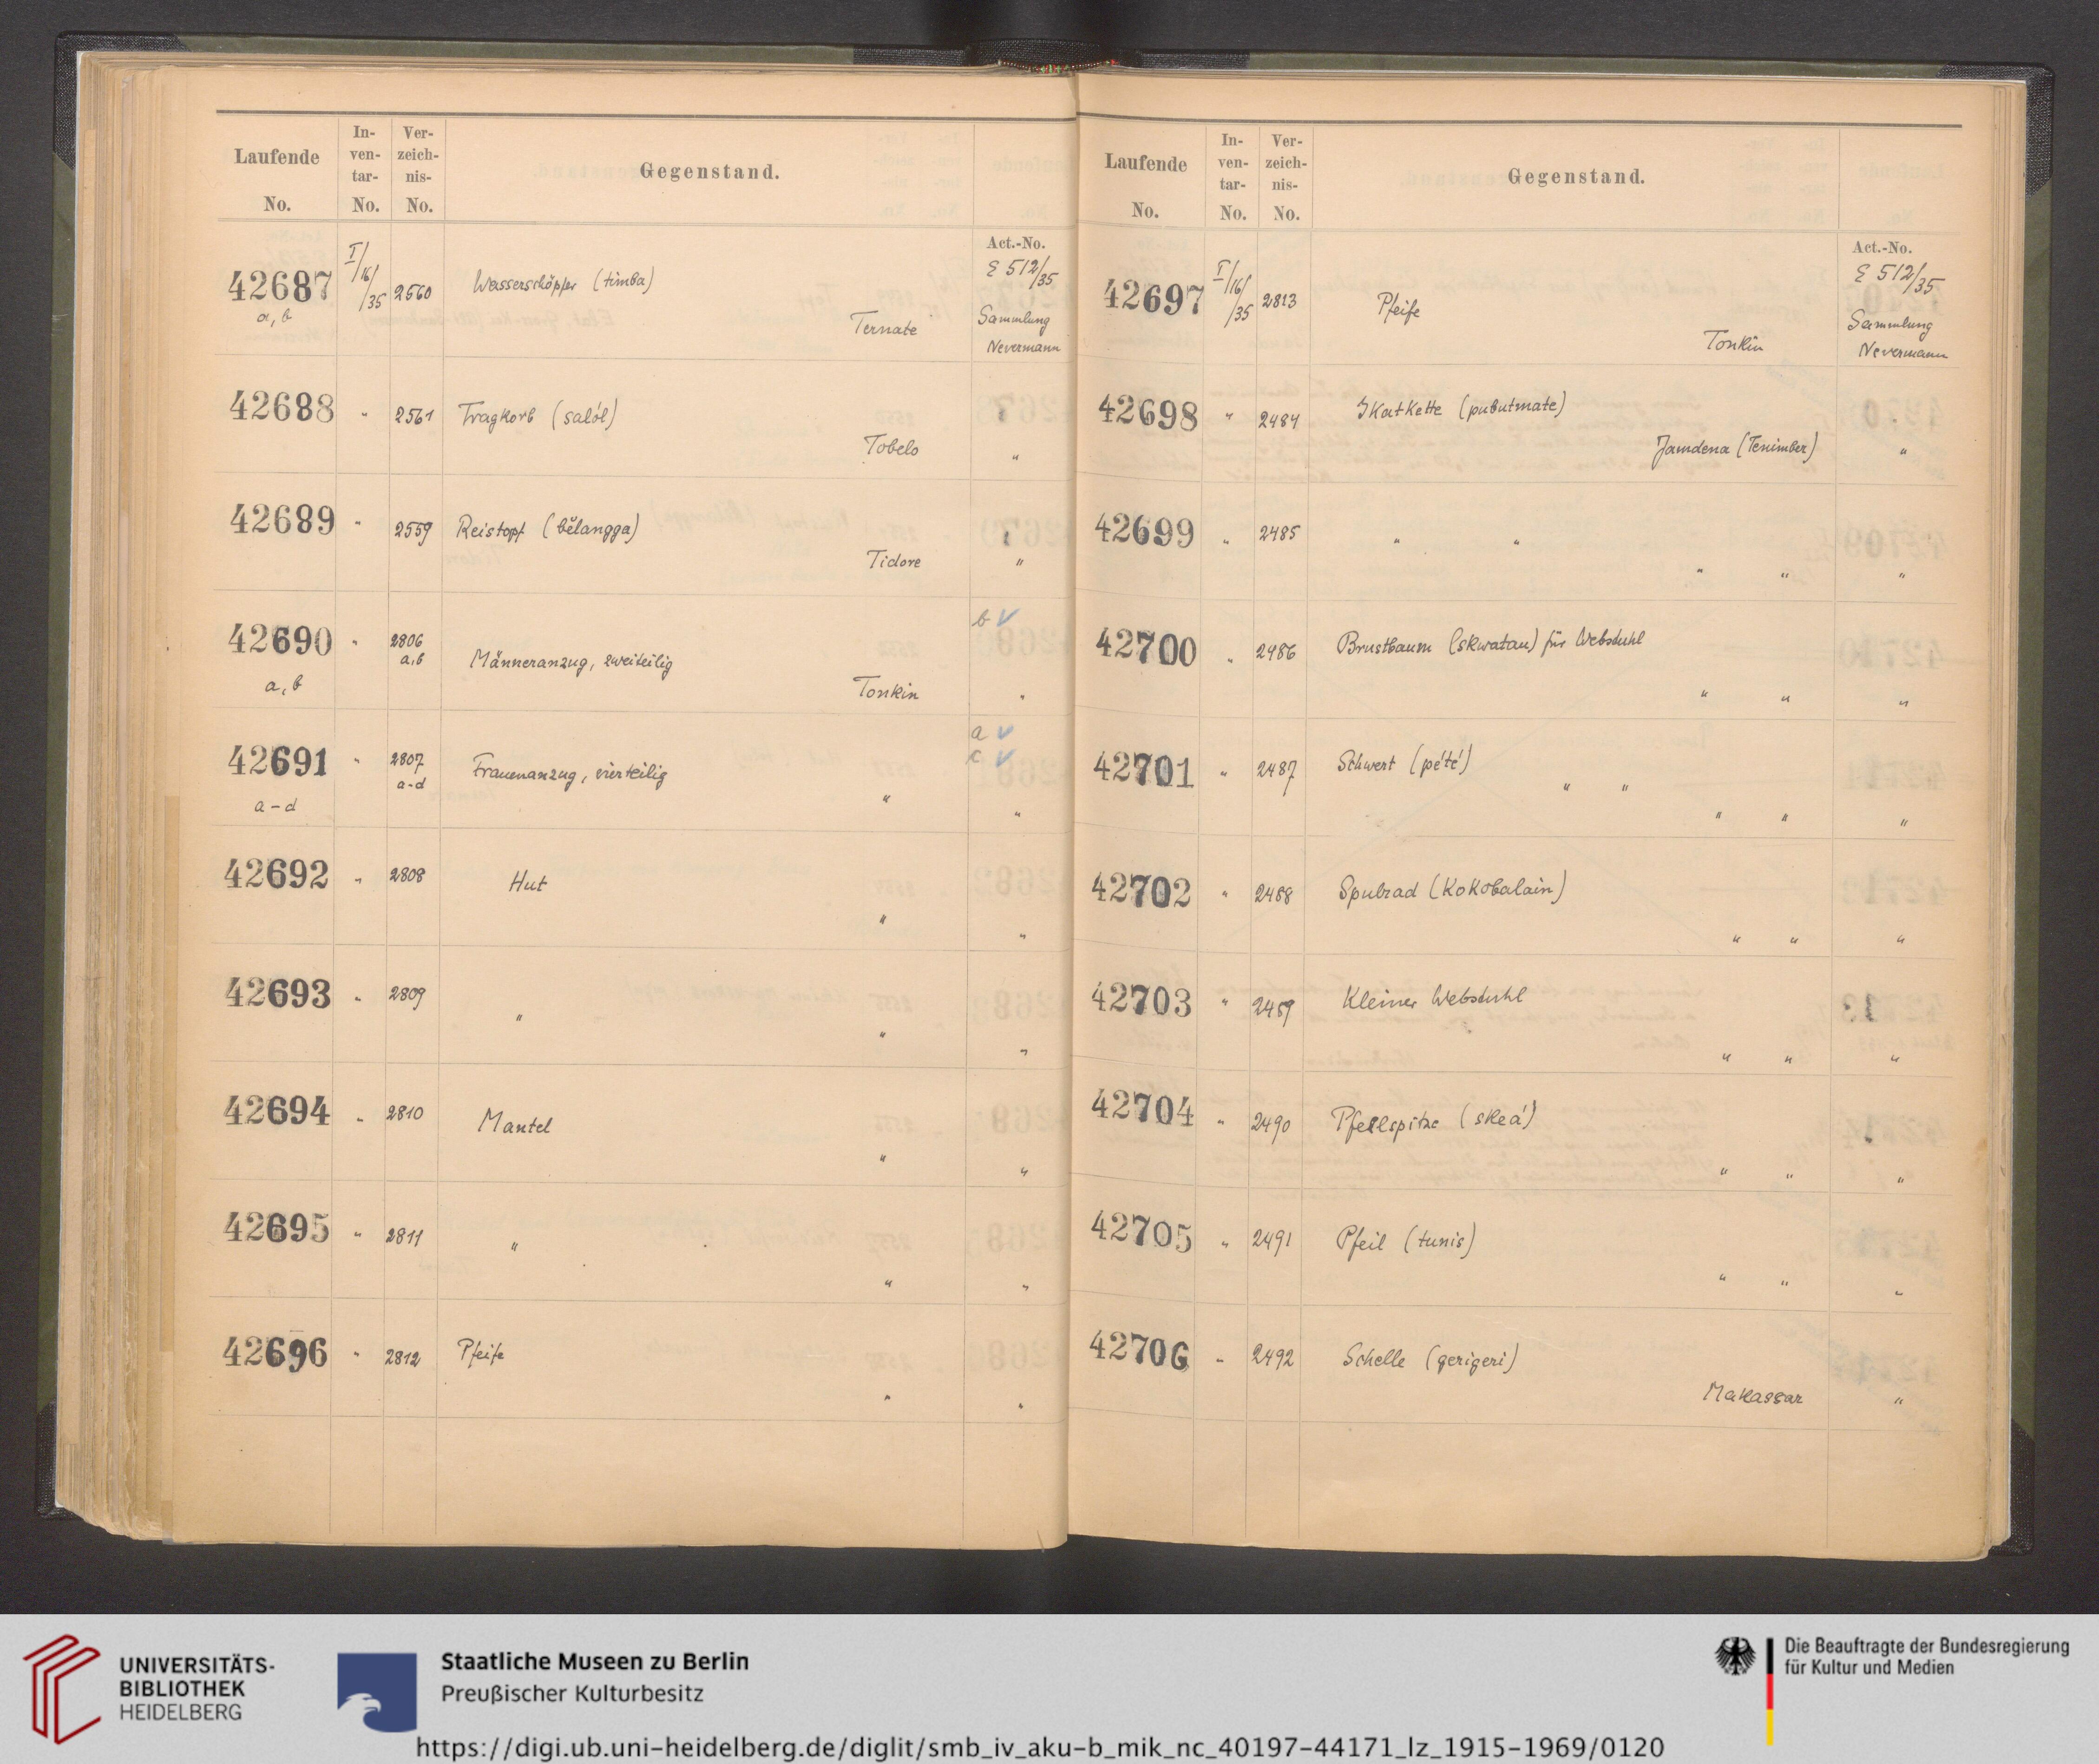 Laufende No. In-ven-tar-No. Ver-zeich-nis-No. Gegenstand.
Act.-No.
42687 a, b I/16/35 2560 Wasserschöpfer (timba) Ternate E 512/35 Sammlung Nevermann
42688 " 2561 Tragkorb (salól) Tobelo "
42689 " 2559 Reistopf (bĕlangga) Tidore "
b ✓
42690 a, b " 2806 a,b Männeranzug, zweiteilig Tonkin "
a ✓
c ✓
42691 a-d " 2807 a-d Frauenanzug, vierteilig " "
42692 " 2808 Hut " "
42693 " 2809 " " "
42694 " 2810 Mantel " "
42695 " 2811 " " "
42696 " 2812 Pfeife " "
Laufende No. In-ven-tar-No. Ver-zeich-nis-No. Gegenstand.
Act.-No.
42697 I/16/35 2813 Pfeife Tonkin E 512/35 Sammlung Nevermann
42698 " 2484 Ikatkette (pubutmate) Jamdena (Tenimber) "
42699 " 2485 " " " " "
42700 " 2486 Brustbaum (skwatan) für Webstuhl " " "
42701 " 2487 Schwert (pété) " " " " "
42702 " 2488 Spulrad (kokobalain) " " "
42703 " 2489 Kleiner Webstuhl " " "
42704 " 2490 Pfeilspitze (skeá) " " "
42705 " 2491 Pfeil (tunis) " " "
42706 " 2492 Schelle (gerigeri) Makassar "
UNIVERSITÄTS-
BIBLIOTHEK
HEIDELBERG
Staatliche Museen zu Berlin
Preußischer Kulturbesitz
Die Beauftragte der Bundesregierung
für Kultur und Medien
https://digi.ub.uni-heidelberg.de/diglit/smb_iv_aku-b_mik_nc_40197-44171_lz_1915-1969/0120